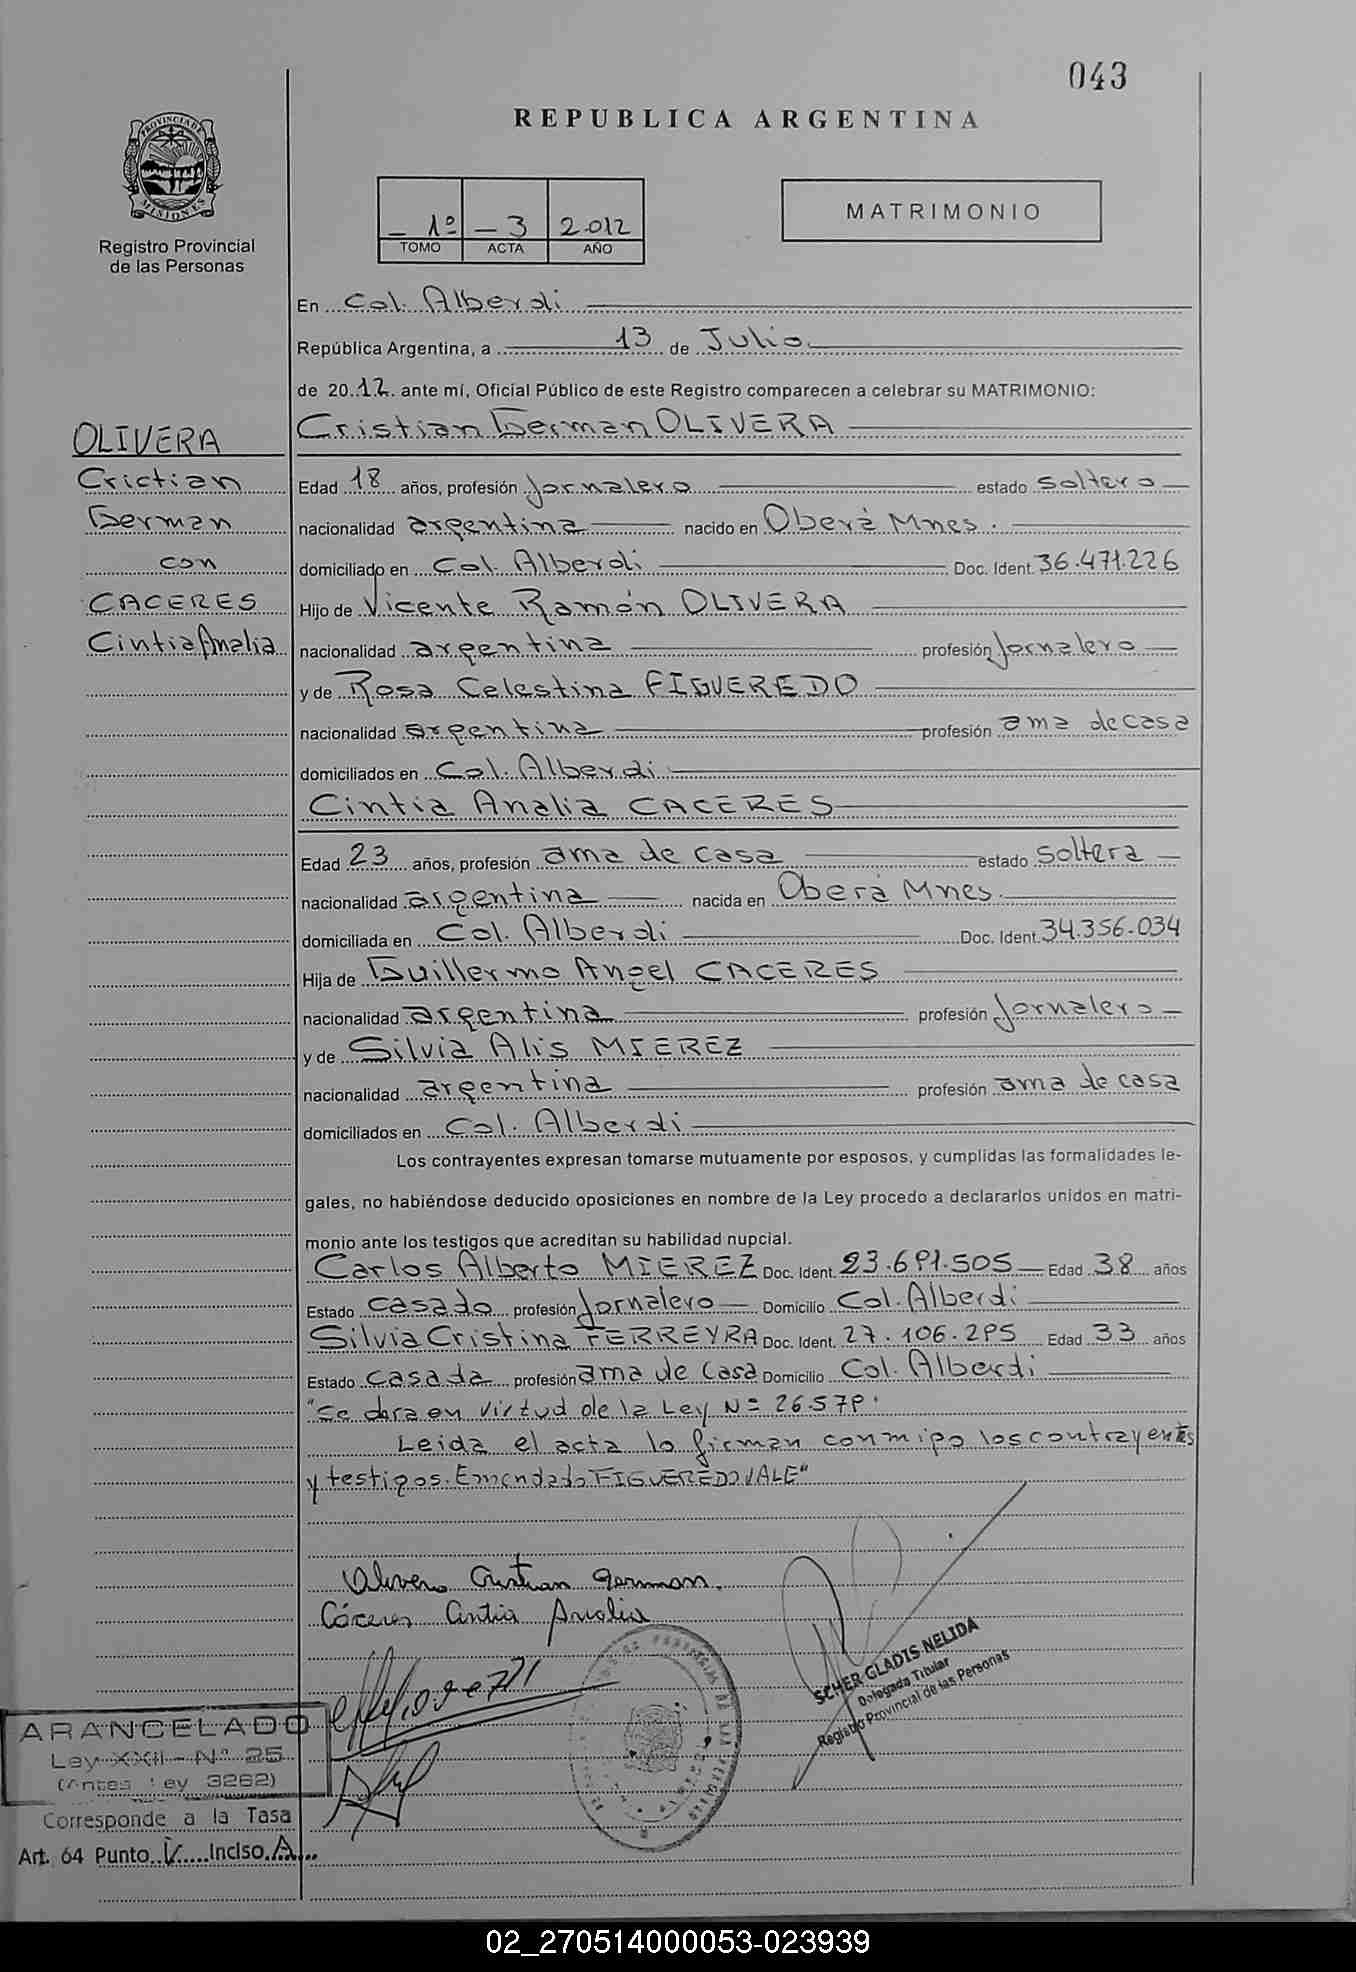 043
REPUBLICA ARGENTINA
PROVINCIA DE
MISIONES
Registro Provincial
de las Personas
1º - 3 2.012
TOMO ACTA AÑO
MATRIMONIO
En Col. Alberdi
República Argentina, a 13 de Julio
de 2012 ante mí, Oficial Público de este Registro comparecen a celebrar su MATRIMONIO:
OLIVERA
Crictian
German
con
CACERES
Cintia Analia
Cristian German OLIVERA
Edad 18 años, profesión Jornalero estado soltero
nacionalidad argentina nacido en Oberá Mnes.
domiciliado en Col. Alberdi Doc. Ident. 36.471.226
Hijo de Vicente Ramón OLIVERA
nacionalidad argentina profesión Jornalero
y de Rosa Celestina FIGUEREDO
nacionalidad argentina profesión ama de casa
domiciliados en Col. Alberdi
Cintia Analia CACERES
Edad 23 años, profesión ama de casa estado soltera
nacionalidad argentina nacida en Oberá Mnes.
domiciliada en Col. Alberdi Doc. Ident. 34.356.034
Hija de Guillermo Angel CACERES
nacionalidad argentina profesión Jornalero
y de Silvia Alis MIEREZ
nacionalidad argentina profesión ama de casa
domiciliados en Col. Alberdi
Los contrayentes expresan tomarse mutuamente por esposos, y cumplidas las formalidades le-
gales, no habiéndose deducido oposiciones en nombre de la Ley procedo a declararlos unidos en matri-
monio ante los testigos que acreditan su habilidad nupcial.
Carlos Alberto MIEREZ Doc. Ident. 23.691.505 Edad 38 años
Estado casado profesión Jornalero Domicilio Col. Alberdi
Silvia Cristina FERREYRA Doc. Ident. 27.106.295 Edad 33 años
Estado casada profesión ama de casa Domicilio Col. Alberdi
"Se dora en virtud de la Ley Nº 26.579.
Leida el acta lo firman conmigo los contrayentes
y testigos. Enmendado FIGUEREDO VALE"
Olivera Cristian German.
Cáceres Cintia Analia
SCHER GLADIS NELIDA
Delegada Titular
Registro Provincial de las Personas
ARANCELADO
Ley XXII - Nº 25
(Antes Ley 3262)
Corresponde a la Tasa
Art. 64 Punto V Inciso A
02_270514000053-023939